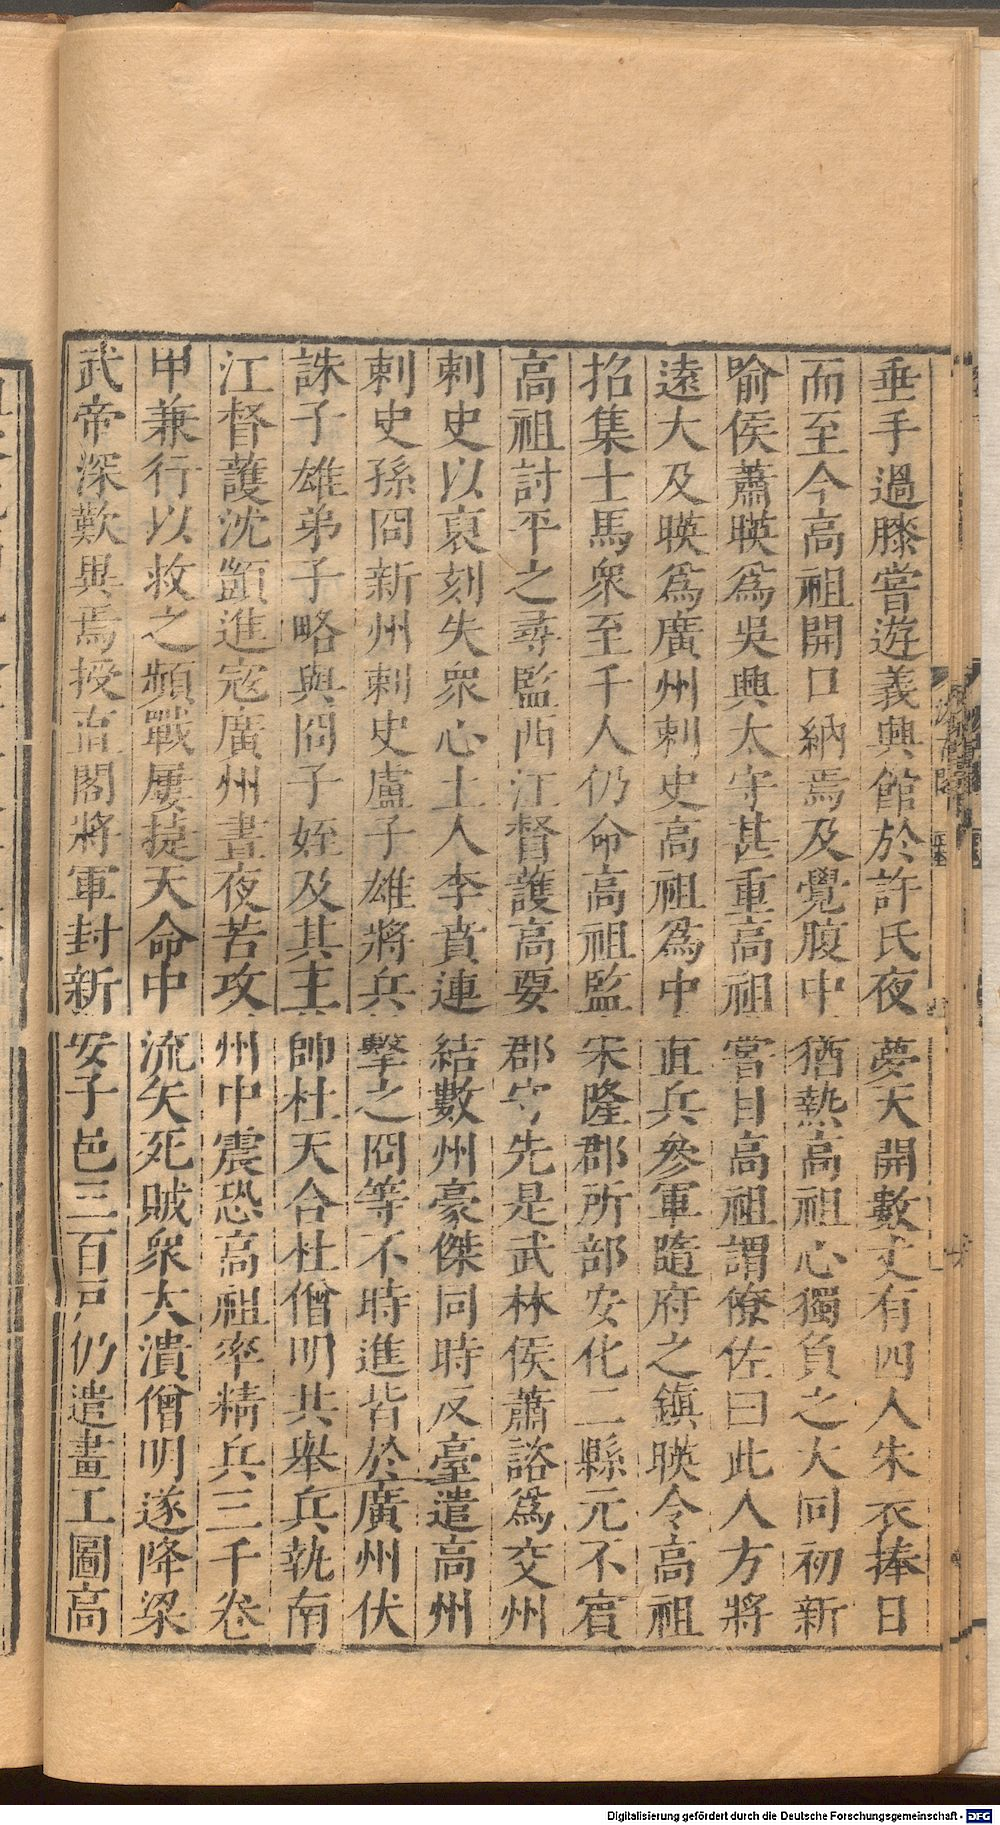 垂手過膝嘗遊義興館於許氏夜夢天開數丈有四人朱衣捧日
而至今高祖開口納焉及覺腹中猶熱高祖心獨負之大同初新
喻侯蕭暎爲吳興太守甚重高祖嘗目高祖謂僚佐曰此人方將
遠大及暎爲廣州刺史高祖爲中直兵參軍隨府之鎮暎令高祖
招集士馬衆至千人仍命高祖監宋隆郡所部安化二縣元不賓
高祖討平之尋監西江督護高要郡守先是武林侯蕭諮爲交州
刺史以裒刻失衆心土人李賁連結數州豪傑同時反臺遣高州
刺史孫冏新州刺史盧子雄將兵擊之冏等不時進皆於廣州伏
誅子雄弟子略與冏子姪及其主帥杜天合杜僧明共舉兵執南
江督護沈顗進寇廣州晝夜苦攻州中震恐高祖率精兵三千卷
甲兼行以救之頻戰屢捷天命中流矢死賊衆大潰僧明遂降梁
武帝深歎異焉授直閣將軍封新安子邑三百戶仍遣畫工圖高
Digitalisierung gefördert durch die Deutsche Forschungsgemeinschaft - DFG